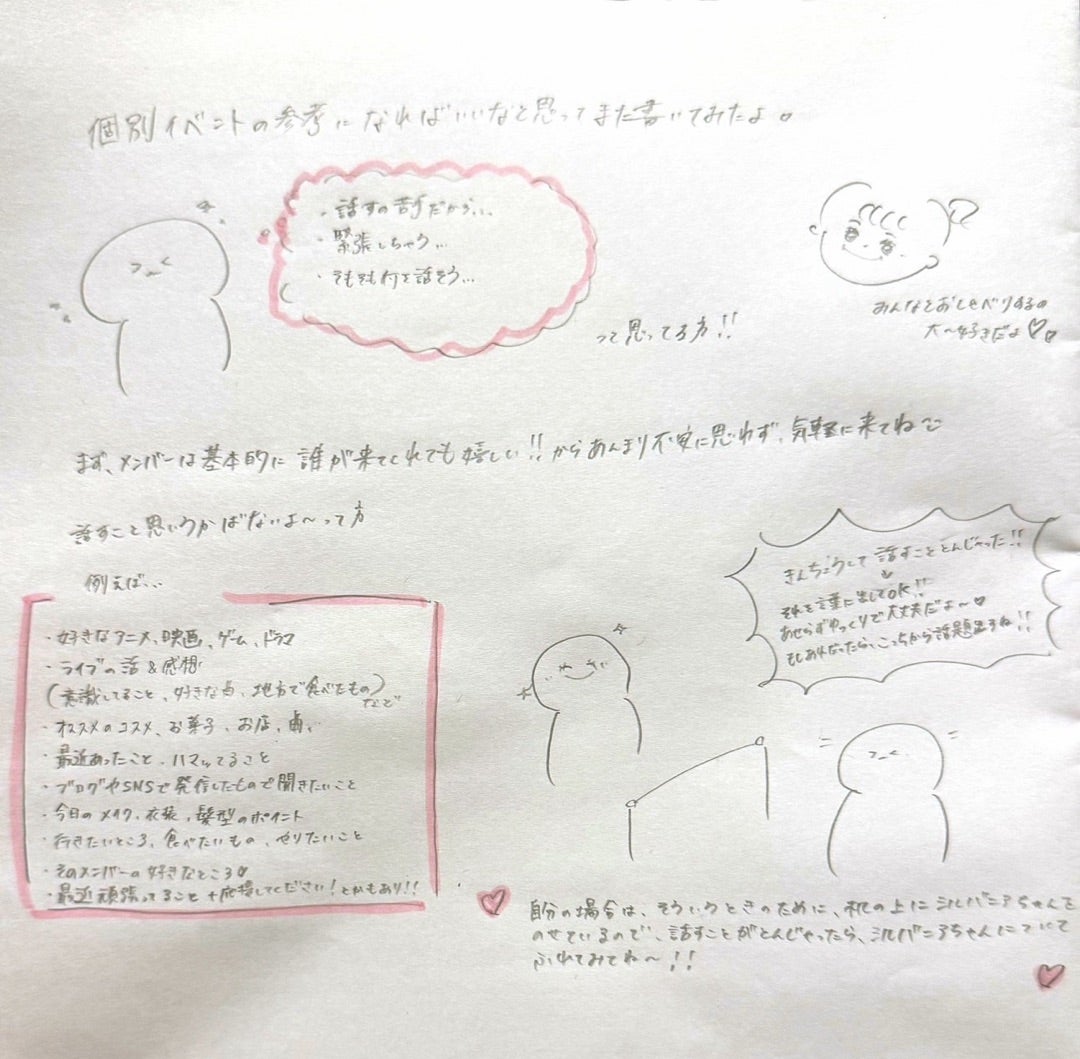 個別イベントの参考になればいいなと思ってまた書いてみたよ
・話すの苦手だから...
・緊張しちゃう...
・そもそも何を話そう...
って思ってる方!!
みんなとおしゃべりするの
大〜好きだよ♡
まず、メンバーは基本的に誰が来てくれても嬉しい!!からあんまり不安に思わず、気軽に来てね
話すこと思いうかばないよ〜って方
例えば...
・好きなアニメ、映画、ゲーム、ドラマ
・ライブの話&感想
(意識してること、好きな点、地方で食べたもの)
など
・オススメのコスメ、お菓子、お店、曲、
・最近あったこと、ハマってること
・ブログやSNSで発信したもので聞きたいこと
・今日のメイク、衣装、髪型のポイント
・行きたいところ、食べたいもの、やりたいこと
・そのメンバーの好きなところ♡
・最近頑張ってること+応援してください!とかもあり!!
きんちょうして話すこととんじゃった!!
↓
それを言葉に出してOK!!
あせらずゆっくりで大丈夫だよ〜♡
もしあれだったら、こっちから話題出すね!!
自分の場合は、そういうときのために、机の上にシルバニアちゃんを
のせているので、話すことがとんじゃったら、シルバニアちゃんについて
ふれてみてね〜!!